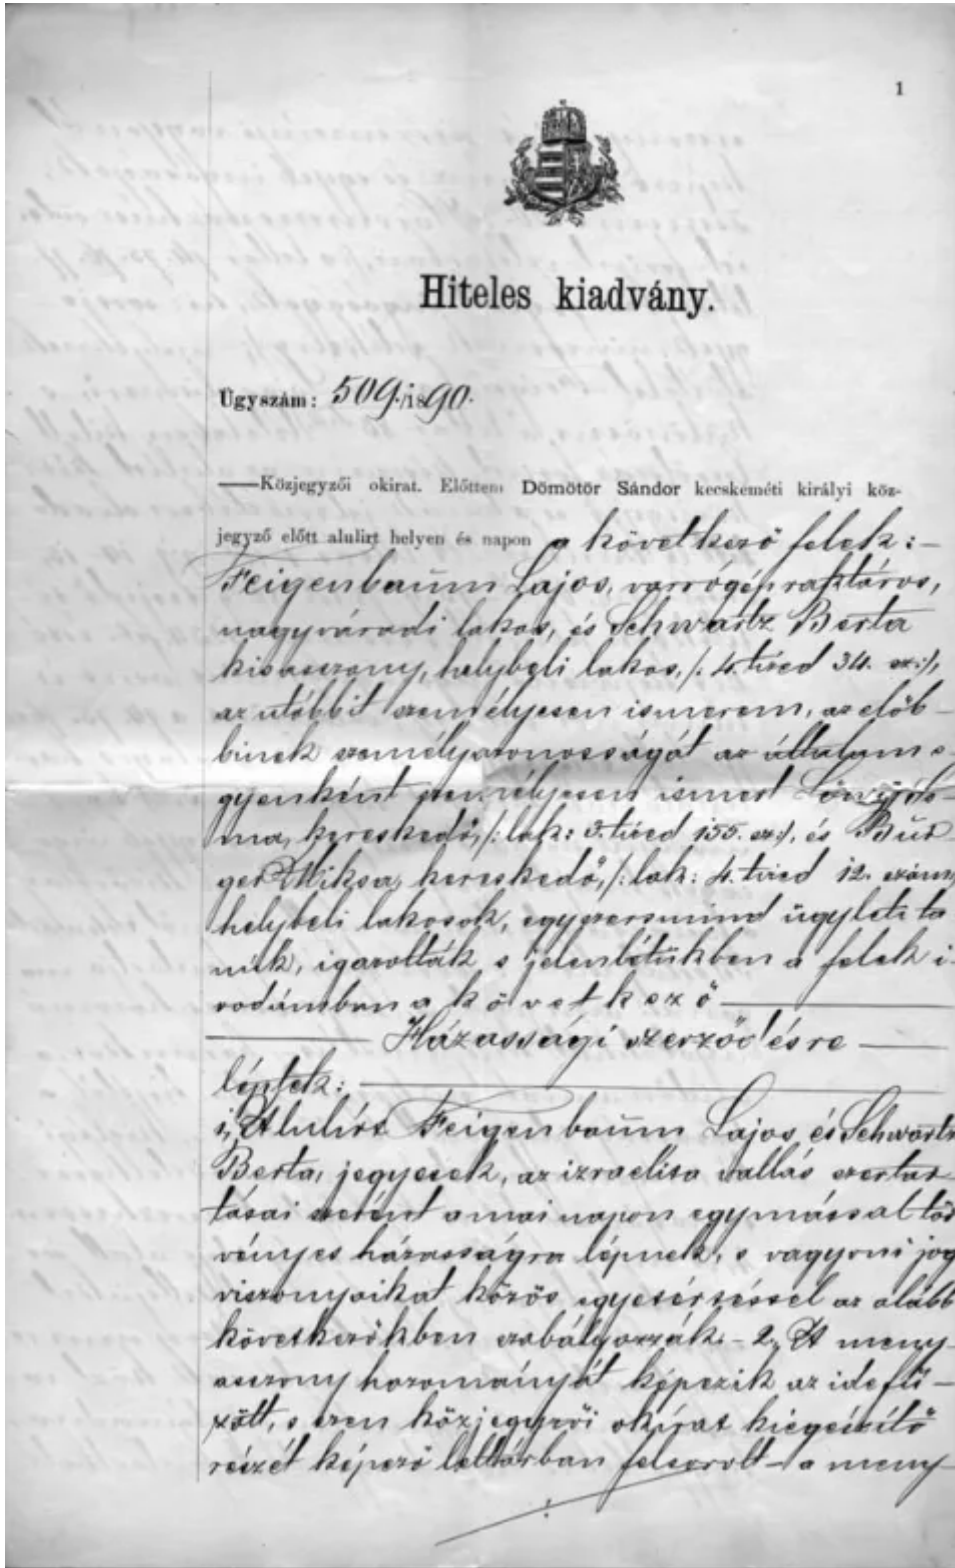 1
Hiteles kiadvány.
Ügyszám: 509./1890.
—Közjegyzői okirat. Előttem Dömötör Sándor kecskeméti királyi köz-
jegyző előtt alulirt helyen és napon a következő felek:-
Feigenbaum Lajos, varrógépraktáros,
nagyváradi lakos, és Schwartz Berta
kisasszony, helybeli lakos, /: 4. tized 34. sz:/,
az utóbbit személyesen ismerem, az előb-
binek személyazonosságát az általam e-
gyenként személyesen ismert
ma, kereskedő, /: lak: 3. tized 155. sz:/, és Bür-
ger Miksa, kereskedő, /: lak: 4. tized 12. szám,
helybeli lakosok, egyszersmind ügyleti ta
núk, igazolták s jelenlétükben a felek i-
rodámban a következő
Házassági szerződésre
léptek:
1, Alulírt Feigenbaum Lajos és Schwartz
Berta, jegyesek, az izraelita vallás szertar
tásai szerént a mai napon egymással tör
vényes házasságra lépnek, s vagyoni jog
viszonyaikat közös egyetértéssel az alább
következőkben szabályozzák. - 2, A meny-
asszony hozományát képezik az idefű-
zött, s ezen közjegyzői okirat kiegészítő
részét képező leltárban felsorolt - a meny-